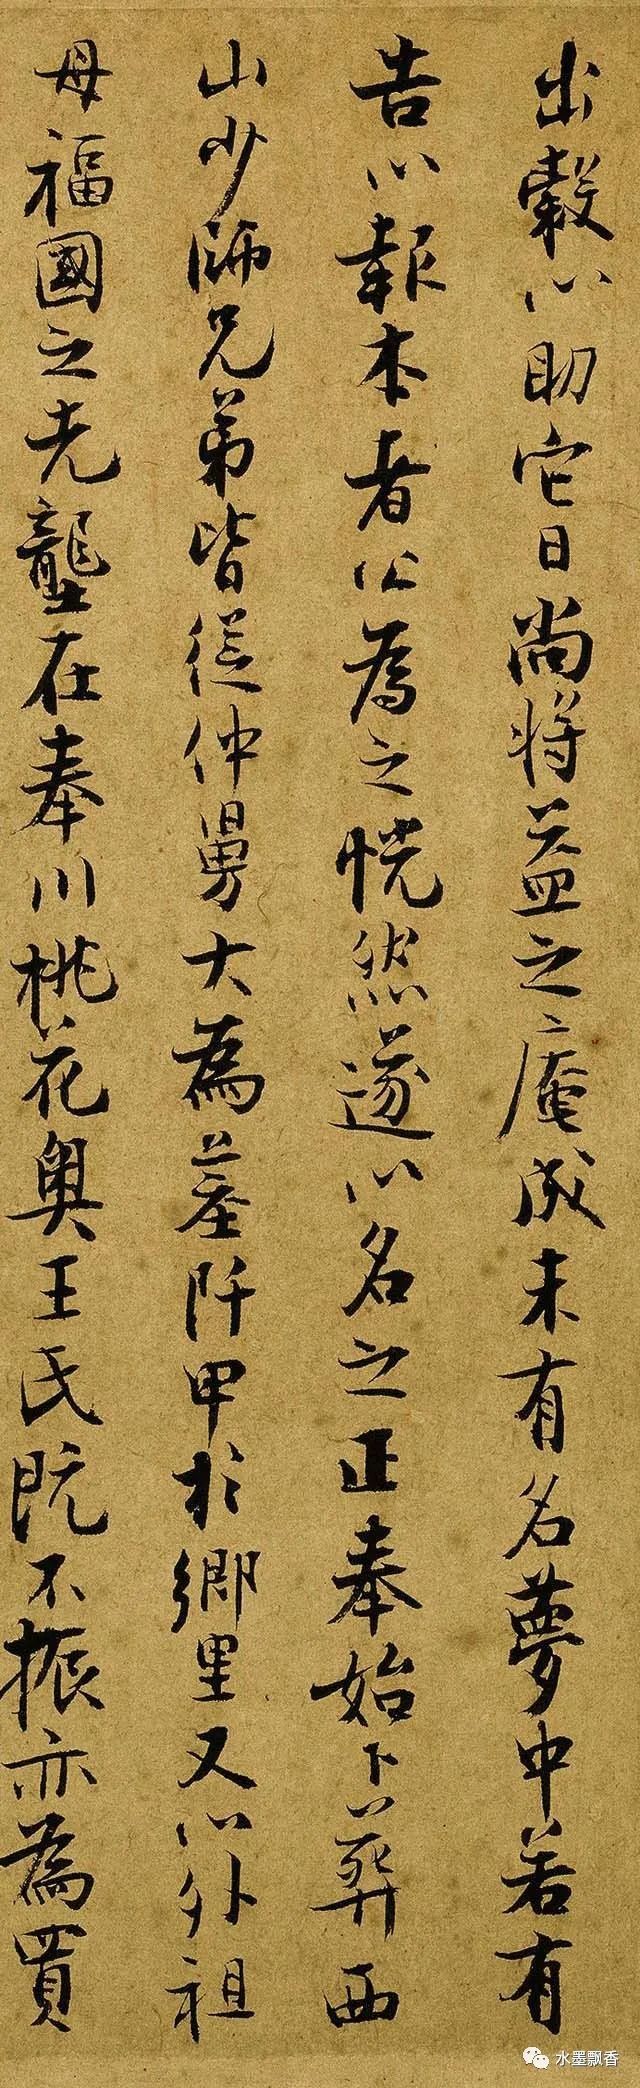 出穀以助它日尚将益之庵成未有名夢中若有
告以報本者公為之恍然遂以名之正奉始卜葬西
山少師兄弟皆從仲舅大為墓阡甲於鄉里又以外祖
母福國之先壟在奉川桃花奧王氏既不振亦為買
水墨飘香